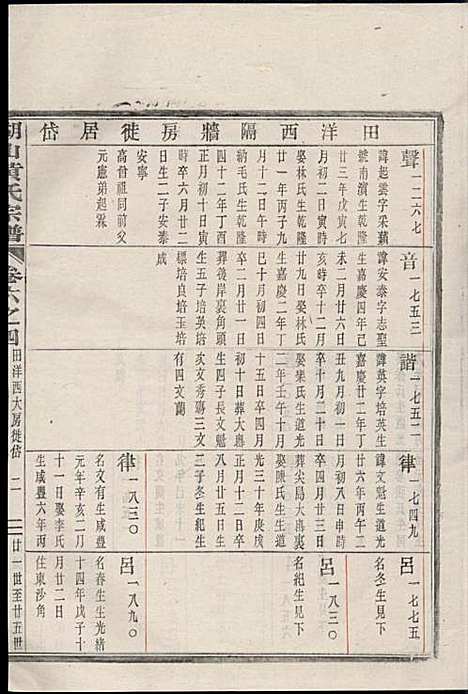 田洋西隔牆房徙居岱
聲一二六七
諱起雲字采蘋
號南濱生乾隆
廿三年戊寅七
月初二日寅時
娶林氏生乾隆
廿一年丙子九
月十二日廿二
納毛氏生乾隆
四十二年丁酉
正月初十日寅
時卒六月廿二
日生二子安泰
安寧
高曾祖同前父
元憲弟起霖
音一七五三
諱安泰字志聖
生嘉慶四年己
未二月廿六日
亥時卒十二月
廿九日娶林氏
已十月初二日
卒四月初四日
葬後岸裏島蘭
生五子培英培
標培良培玉培
成
諧一七五二
諱英字培英生
嘉慶廿二年丁
丑九月初一日
卒十月二十日
娶梁氏生道光
十五日卒四月
初十日葬大嶴
生四子長文魁
次文秀寡三文
有四文蘭
律一七四九
諱文魁生道光
廿六年丙午二
月十二日未時
卒四月廿三日
葬尖局大嶴裏
娶陳氏生生道
光三十年庚戌
八月廿五日生
二子冬生紀生
律一八三〇
名文有生咸豐
元年辛亥二月
十一日娶李氏
生咸豐六年丙
呂一七七五
名冬生見下
呂一八三〇
名紀生見下
呂一八九〇
名春生生光緒
十四年戊子十
月廿二日
住東沙角
湖山黃氏宗譜
卷六之四
田洋西大房徙岱
二
廿一世至廿五世